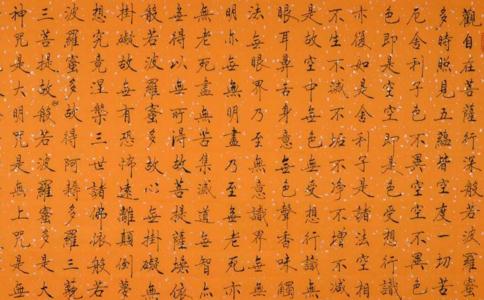 觀自在菩薩行深般若波羅蜜
多時照見五蘊皆空度一切苦
厄舍利子色不異空空不異色
色即是空空即是色受想行識
亦復如是舍利子是諸法空相
不生不滅不垢不淨不增不減
是故空中無色無受想行識無
眼耳鼻舌身意無色聲香味觸
法無眼界乃至無意識界無無
明亦無無明盡乃至無老死亦
無老死盡無苦集滅道無智亦
無得以無所得故菩提薩埵依
般若波羅蜜多故心無掛礙無
掛礙故無有恐怖遠離顛倒夢
想究竟涅槃三世諸佛依般若
波羅蜜多故得阿耨多羅三藐
三菩提故般若波羅蜜多
神咒是大明咒是無上咒是